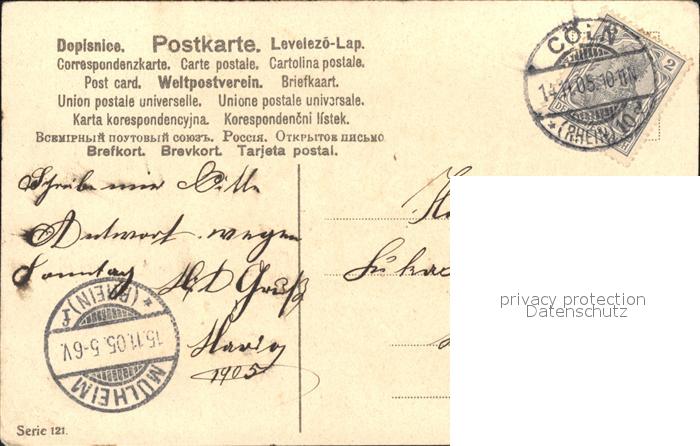 Dopisnice. Postkarte. Levelező-Lap.
Correspondenzkarte. Carte postale. Cartolina postale.
Post card. Weltpostverein. Briefkaart.
Union postale universelle. Unione postale universale.
Karta korespondencyjna. Korespondenční lístek.
Всемірный почтовый союзъ. Россія. Открытое письмо
Brefkort. Brevkort. Tarjeta postal.
CÖLN
2
14.11.05.10-11N
*(RHEIN)10
Schreibe mir Bitte
Antwort wegen
Sonntag Mit Gruß
1905
*(RHEIN)1
15.11.05.5-6V.
MÜLHEIM
privacy protection
Datenschutz
Serie 121.